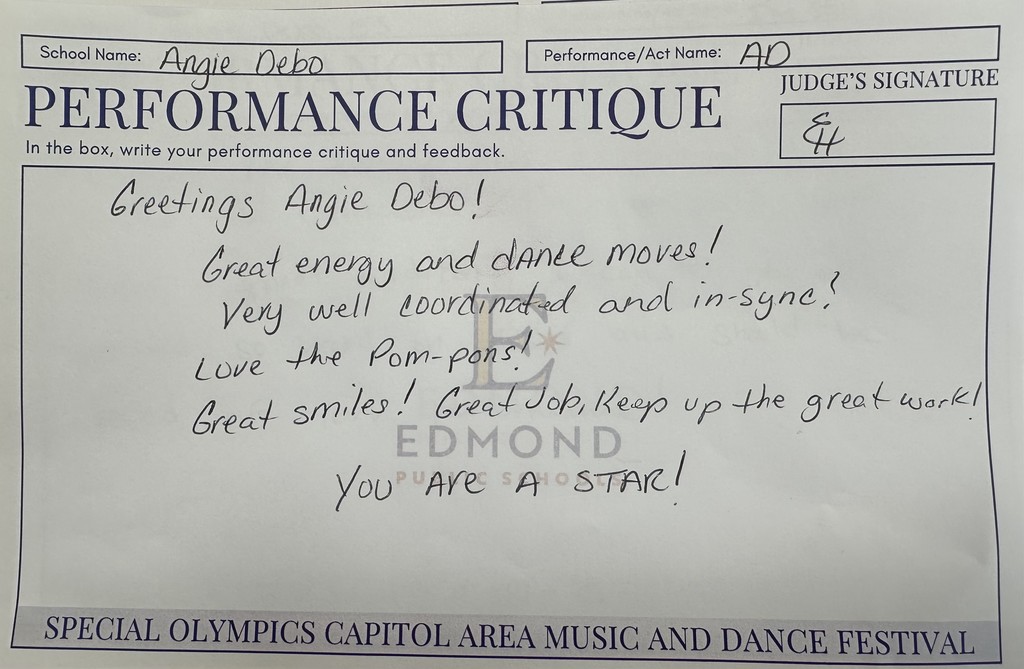 School Name: Angie Debo
Performance/Act Name: AD
PERFORMANCE CRITIQUE
JUDGE'S SIGNATURE
In the box, write your performance critique and feedback.
EH
Greetings Angie Debo!
Great energy and dance moves!
Very well coordinated and in-sync!
Love the Pom-pons!
Great smiles! Great Job, Keep up the great work!
E
EDMOND
PUBLIC SCHOOLS
You Are A STAR!
SPECIAL OLYMPICS CAPITOL AREA MUSIC AND DANCE FESTIVAL